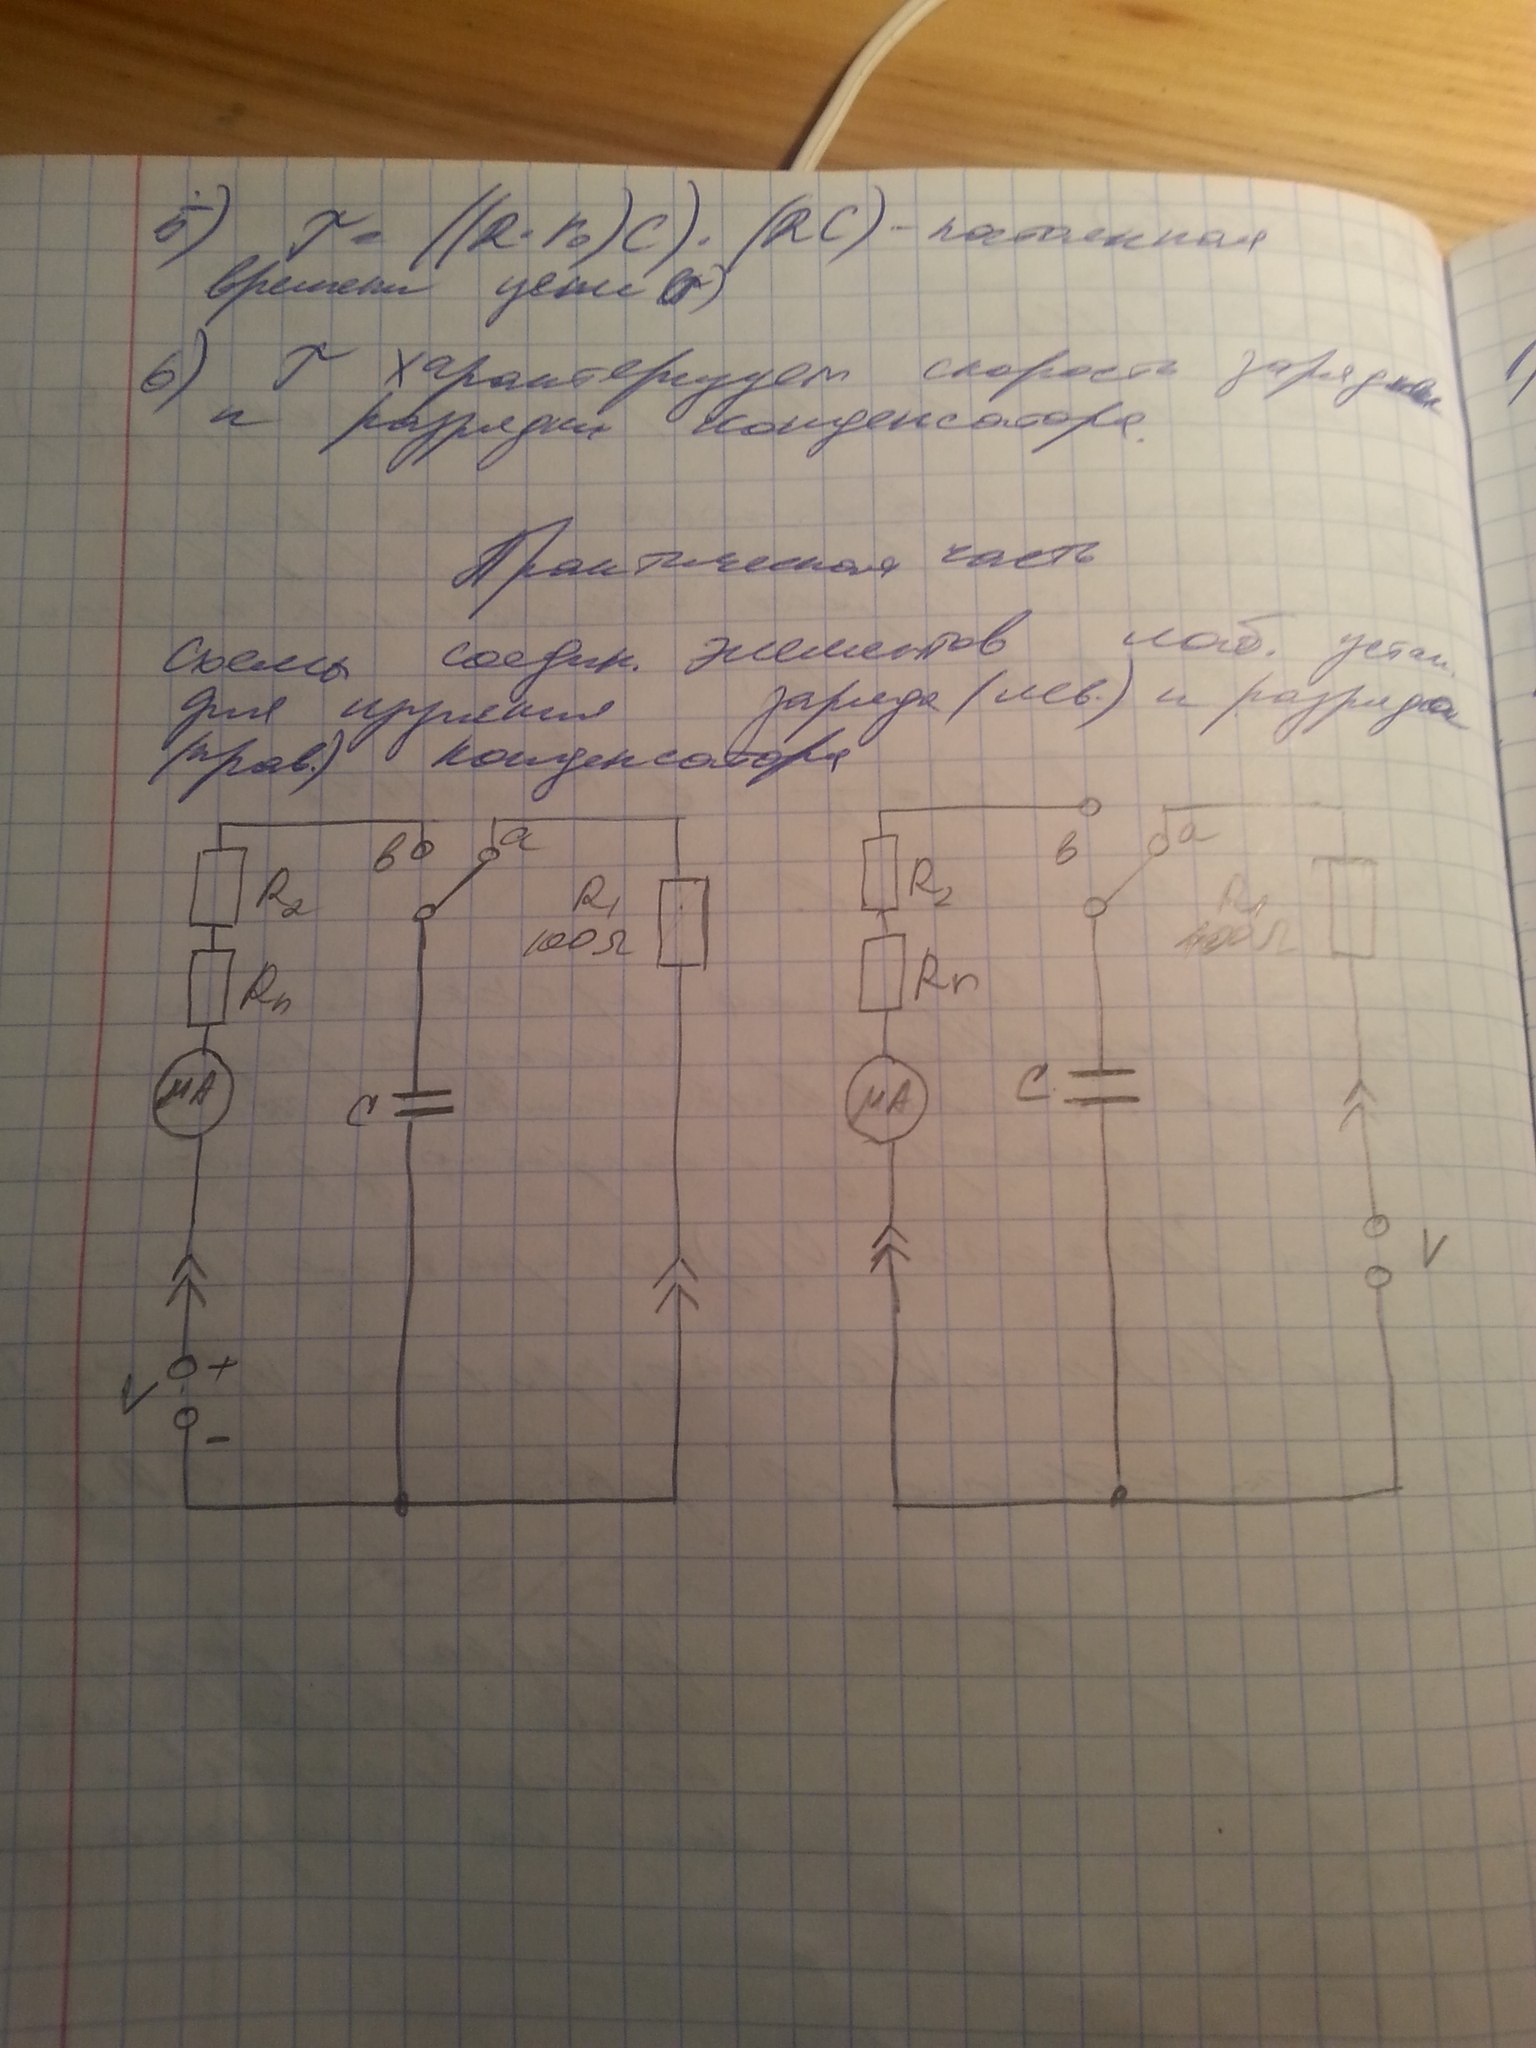 5) τ = ((R+r₀)C). (RC) - постоянная
времени цепи (τ)
6) τ характеризует скорость зарядки
и разрядки конденсатора.
Практическая часть
Схемы соедин. элементов лаб. устан.
для изучения заряда (лев.) и разряда
(прав.) конденсатора
в a в a
R₂ R₁ R₂ R₁
100Ω 100Ω
Rп Rп
μA C μA C
V + V
-